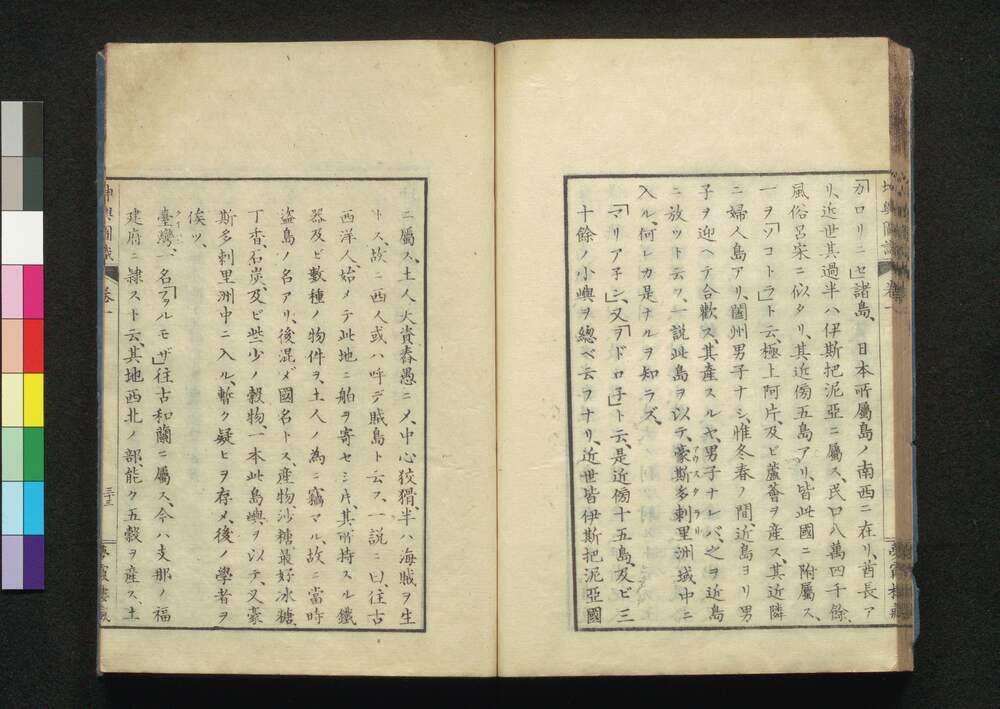 「カロリニセ」諸島、日本所屬島ノ南西ニ在リ、酋長ア
リ、近世其過半ハ伊斯把泥亞ニ屬ス、民口八萬四千餘、
風俗呂宋ニ似タリ、其近傍五島アリ、皆此國ニ附屬ス、
一ヲ「ソコトラ」ト云、極上阿片、及ビ蘆薈ヲ産ス、其近隣
ニ婦人島アリ、闔州男子ナシ、惟冬春ノ間、近島ヨリ男
子ヲ迎ヘテ合歡ス、其産スルヤ、男子ナレバ、之ヲ近島
ニ放ツト云フ、一説此島ヲ以テ、豪斯多剌里洲域中ニ
アウスタラリ
入ル、何レカ是ナルヲ知ラズ、
「マリア子ン」、又「ヲドロ子」ト云、是近傍十五島、及ビ三
十餘ノ小嶼ヲ總ベ云フナリ、近世皆伊斯把泥亞國
ニ屬ス、土人大貲春愚ニメ、中心狡猾、半ハ海賊ヲ生
トス、故ニ西人或ハ呼デ賊島ト云フ、一説ニ曰、往古
西洋人始メテ此地ニ舶ヲ寄セシ片、其所持スル鐵
器及ビ數種ノ物件ヲ、土人ノ為ニ竊マル、故ニ當時
盗島ノ名アリ、後混メ國名トス、産物、沙糖最好氷糖、
丁香、石炭、及ビ些少ノ穀物、一本此島嶼ヲ以テ、又豪
斯多剌里洲中ニ入ル、暫ク疑ヒヲ存メ、後ノ學者ヲ
俟ツ、
臺灣、一名「フヲルモザ」往古和蘭ニ屬ス、今ハ支那ノ福
建府ニ隷スト云、其地西北ノ部、能ク五穀ヲ産ス、土
坤輿圖識
卷一
三十三